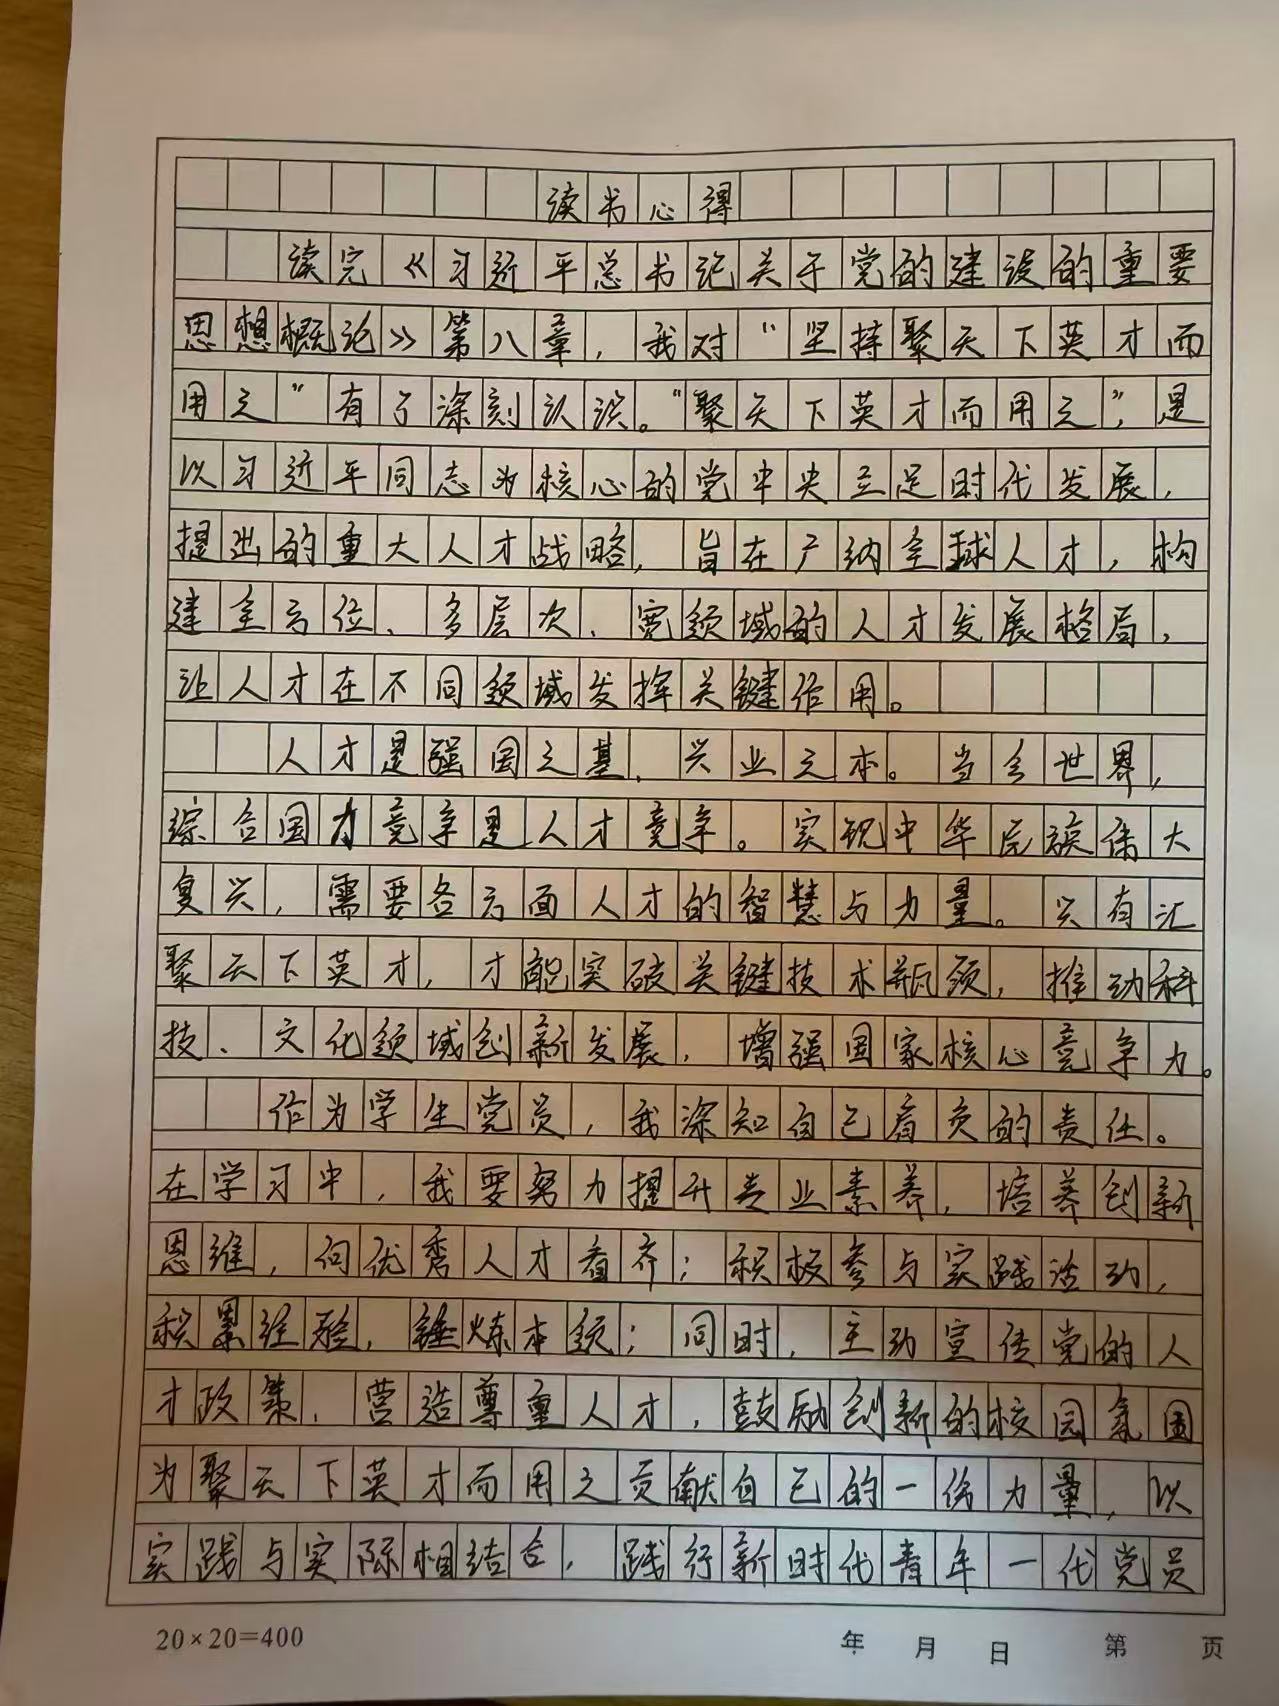 读书心得
读完《习近平总书记关于党的建设的重要
思想概论》第八章，我对“坚持聚天下英才而
用之”有了深刻认识。“聚天下英才而用之”，是
以习近平同志为核心的党中央立足时代发展，
提出的重大人才战略，旨在广纳全球人才，构
建全方位、多层次、宽领域的人才发展格局，
让人才在不同领域发挥关键作用。
人才是强国之基、兴业之本。当今世界，
综合国力竞争是人才竞争。实现中华民族伟大
复兴，需要各方面人才的智慧与力量。只有汇
聚天下英才，才能突破关键技术瓶颈，推动科
技、文化领域创新发展，增强国家核心竞争力。
作为学生党员，我深知自己肩负的责任。
在学习中，我要努力提升专业素养，培养创新
思维，向优秀人才看齐；积极参与实践活动，
积累经验，锤炼本领；同时，主动宣传党的人
才政策，营造尊重人才，鼓励创新的校园氛围
为聚天下英才而用之贡献自己的一份力量，以
实践与实际相结合，践行新时代青年一代党员
20×20=400 年 月 日 第 页